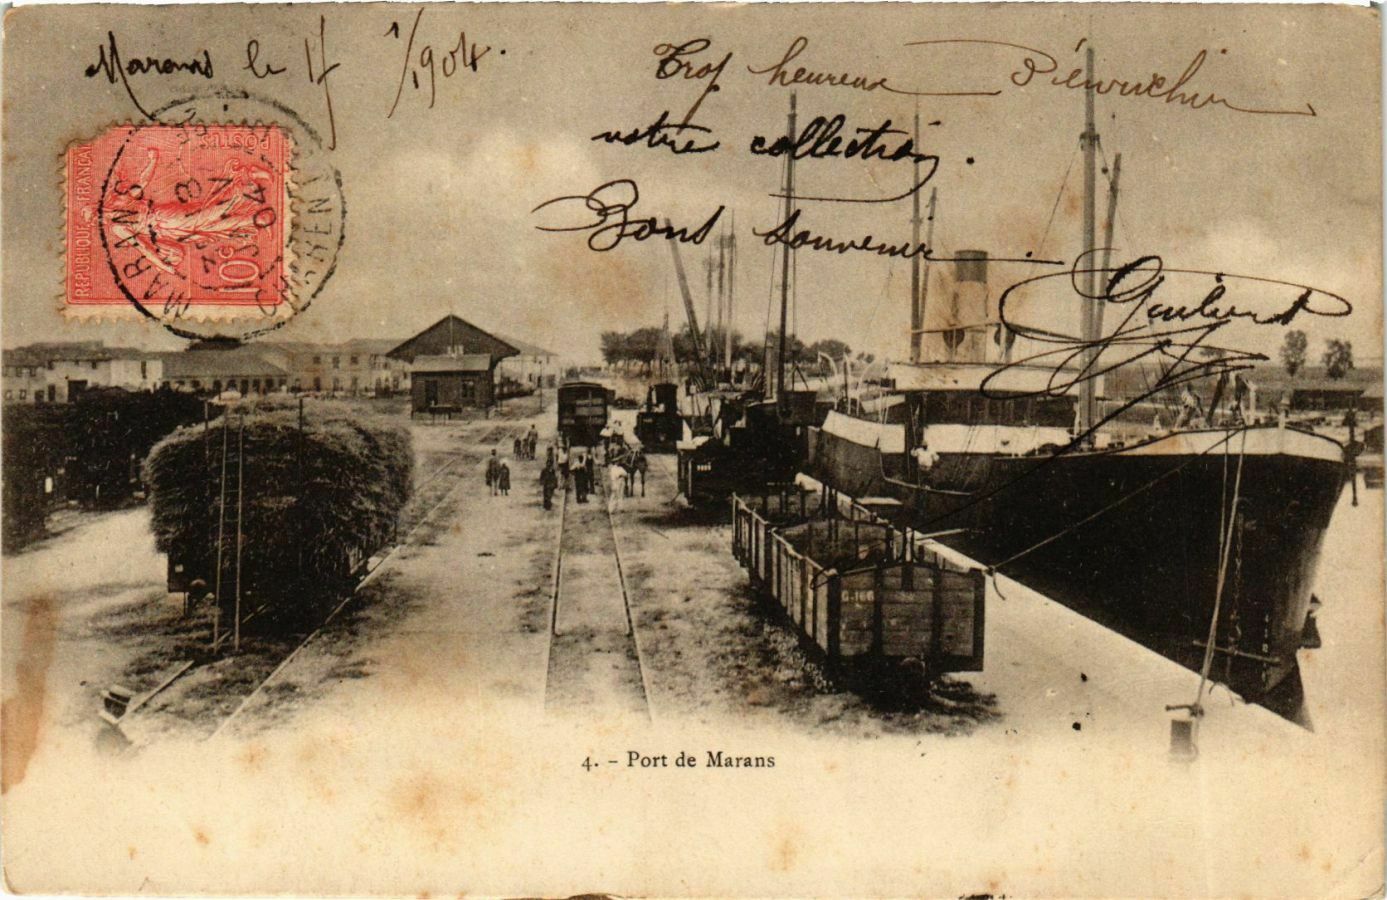 Marans le 17 1/1904.
Trop heureux
votre collection.
Bons souvenirs
RÉPUBLIQUE FRANÇAISE
POSTES
10c
MARANS
18
JANV
04
G-166
4. – Port de Marans